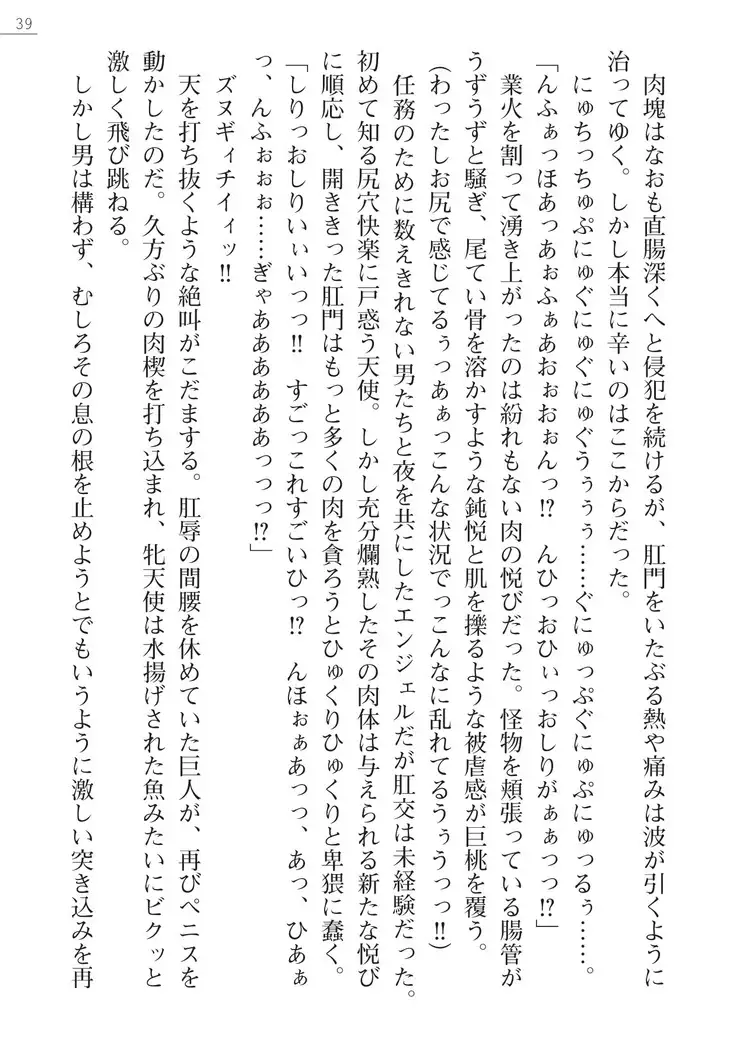 39
肉塊はなおも直腸深くへと侵犯を続けるが、肛門をいたぶる熱や痛みは波が引くように
治ってゆく。しかし本当に辛いのはここからだった。
にゅちっちゅぷにゅぐにゅぐにゅぐうぅぅぅ……ぐにゅっぷぐにゅぷにゅっるぅ……。
「んふぁっほあっあぉふぁあおぉおぉんっ⁉　んひっおひぃっおしりがぁぁっっ⁉」
業火を割って湧き上がったのは紛れもない肉の悦びだった。怪物を頬張っている腸管が
うずうずと騒ぎ、尾てい骨を溶かすような鈍悦と肌を擽るような被虐感が巨桃を覆う。
（わったしお尻で感じてるぅっあぁっこんな状況でっこんなに乱れてるうぅうっっ‼）
任務のために数えきれない男たちと夜を共にしたエンジェルだが肛交は未経験だった。
初めて知る尻穴快楽に戸惑う天使。しかし充分爛熟したその肉体は与えられる新たな悦び
に順応し、開ききった肛門はもっと多くの肉を貪ろうとひゅくりひゅくりと卑猥に蠢く。
「しりっおしりいぃいっっ‼　すごっこれすごいひっ⁉　んほぉぁあっっ、あっ、ひあぁ
っ、んふぉぉぉ……ぎゃああああああっっっ⁉」
ズヌギィチイィッ‼
天を打ち抜くような絶叫がこだまする。肛辱の間腰を休めていた巨人が、再びペニスを
動かしたのだ。久方ぶりの肉楔を打ち込まれ、牝天使は水揚げされた魚みたいにビクッと
激しく飛び跳ねる。
しかし男は構わず、むしろその息の根を止めようとでもいうように激しい突き込みを再